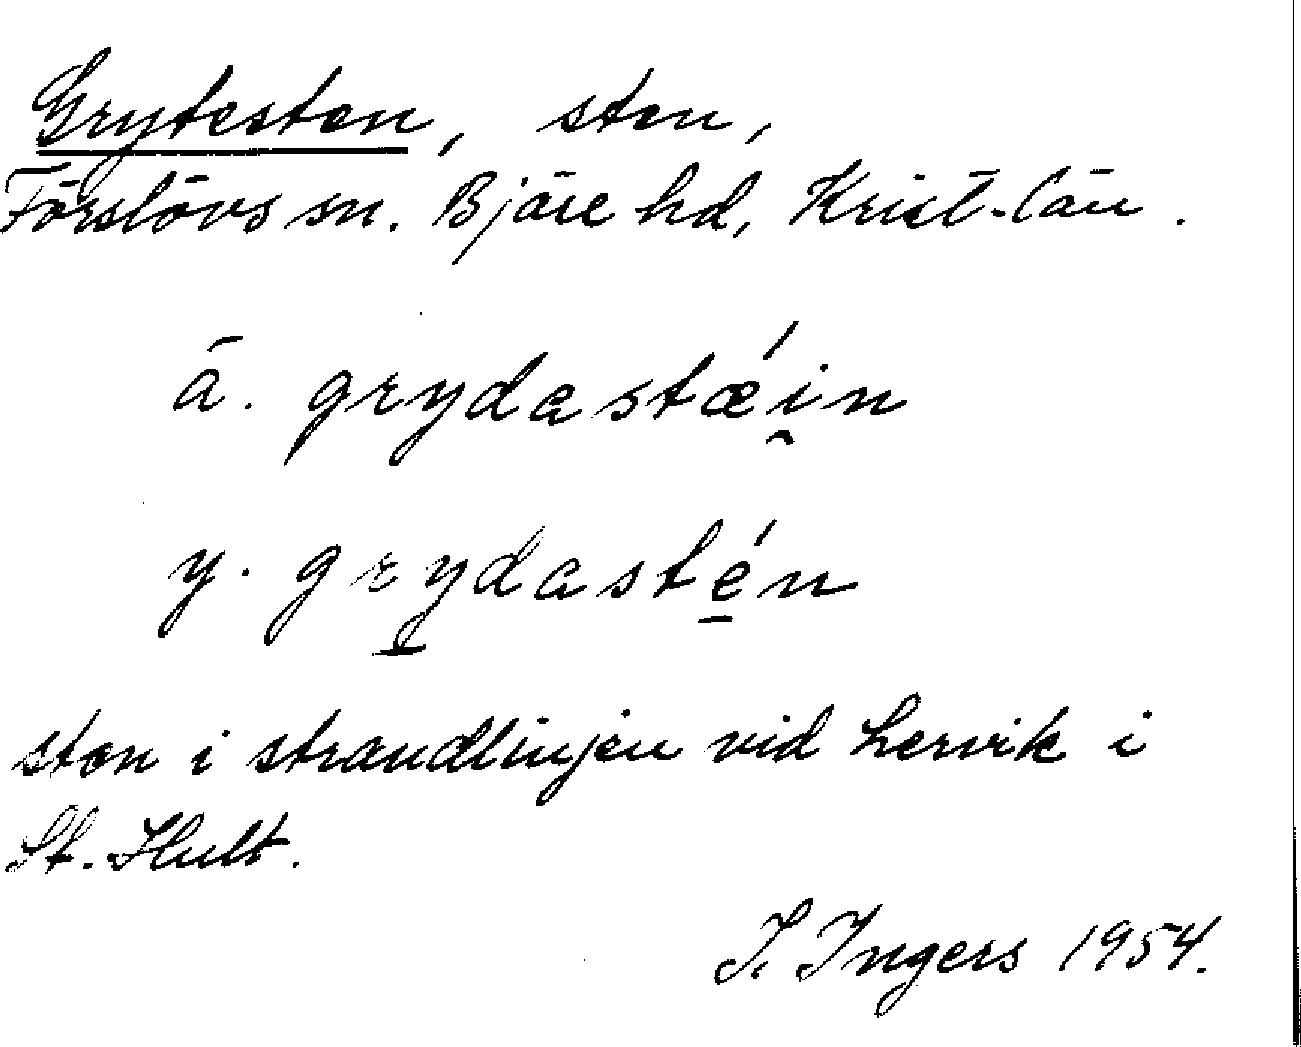 Grytesten, sten,
Förslövs sn. Bjäre hd, Krist. län.
ä. grydastǽi̯n
y. gry̠dasté̠n
sten i strandlinjen vid Lervik i
St. Hult.
I. Ingers 1954.